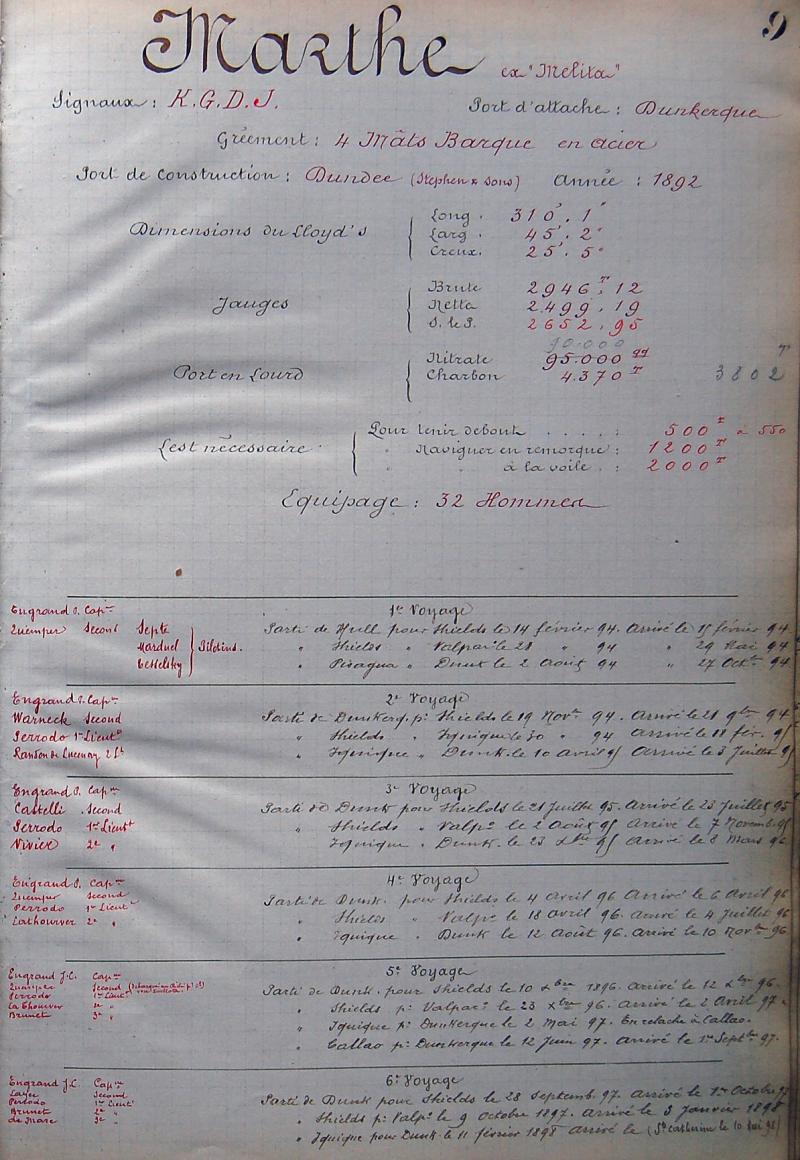 9
Marthe ex "Melita"
Signaux : K.G.D.J. Port d'attache : Dunkerque
Gréement : 4 Mâts Barque en acier
Port de Construction : Dundee (Stephen & Sons) Année : 1892
Dimensions du Lloyd's
Long. 310'. 1"
Larg. 45'. 2"
Creux. 25'. 5"
Jauges
Brute 2946T, 12
Netta 2499, 19
S. le P. 2652, 95
90.000
Port en Lourd
Nitrate 95.000 qx
Charbon 4.370 T 3802 T
Lest nécessaire
Pour tenir debout . . . . : 500T à 550
" Naviguer en remorque : 1200T
" " à la voile . : 2000T
Equipage : 32 Hommes
1er Voyage
Engrand J. Capne
Quemper Second Septe
Marduel
Pilotins.
Parti de Hull pour Shields le 14 février 94. Arrivé le 15 février 94
" Shields " Valparo le 28 " 94 " 29 Mai 94
" Pisagua " Dunk le 2 Août 94 " 27 Octbre 94
2e Voyage
Engrand J. Capne
Warneck Second
Perrodo 1er Lieutt
Parti de Dunkerq. pr Shields le 19 Novbre 94. Arrivé le 21 9bre 94
" Shields " Iquique le 30 " 94 Arrivé le 18 fév. 95
" Iquique " Dunk. le 10 Avril 95 Arrivé le 3 Juillet 95
3e Voyage
Engrand J. Capne
Castelli Second
Perrodo 1er Lieutt
Nivier 2e "
Parti de Dunk pour Shields le 21 Juillet 95. Arrivé le 23 Juillet 95
" Shields " Valpo le 2 Août 95 Arrivé le 7 Novemb. 95
" Iquique " Dunk. le 23 Xbre 95 Arrivé le 8 Mars 96
4e Voyage
Engrand J. Capne
Quemper Second
Perrodo 1er Lieutt
Lathouwer 2e "
Parti de Dunk. pour Shields le 4 Avril 96 Arrivé le 6 Avril 96
" Shields " Valpo le 18 Avril 96. Arrivé le 4 Juillet 96
" Iquique " Dunk le 12 Août 96. Arrivé le 10 Novbre 96
5e Voyage
Engrand J.C. Capne
Quemper Second
Perrodo 1er Lieutt
Lathouwer 2e "
Brunet 3e "
Parti de Dunk. pour Shields le 10 Xbre 1896. Arrivé le 12 Xbre 96.
" Shields pr Valparo le 23 Xbre 96. Arrivé le 2 Avril 97.
" Iquique pr Dunkerque le 2 Mai 97. En relache à Callao.
" Callao pr Dunkerque le 12 Juin 97. Arrivé le 1er Septbre 97.
6e Voyage
Engrand J.C. Capne
Second
Perrodo 1er Lieutt
Brunet 2e "
de Marc 3e "
Parti de Dunk pour Shields le 28 Septemb. 97. Arrivé le 1er Octobre 97
" Shields pr Valpo le 9 Octobre 1897. Arrivé le 3 Janvier 1898
" Iquique pour Dunk. le 11 février 1898 arrivé le (Ste Catherine le 10 Mai 98)